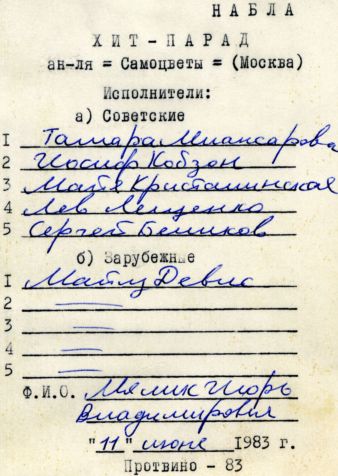 НАБЛА
ХИТ-ПАРАД
ан-ля = Самоцветы = (Москва)
Исполнители:
а) Советские
I Тамара Миансарова
2 Иосиф Кобзон
3 Майя Кристалинская
4 Лев Лещенко
5 Сергей Беликов
б) Зарубежные
I Майлз Девис
2 —
3 —
4 —
5 —
Ф.И.О. Мялик Игорь
Владимирович
"11" июне 1983 г.
Протвино - 83